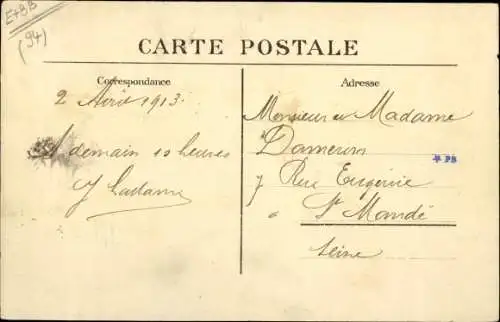 E+BB
(94)
CARTE POSTALE
Correspondance
Adresse
2 Avril 1913.
A demain 10 heures
Monsieur et Madame
Dameron
7 Rue Eugénie
à St Mandé
Seine
PB